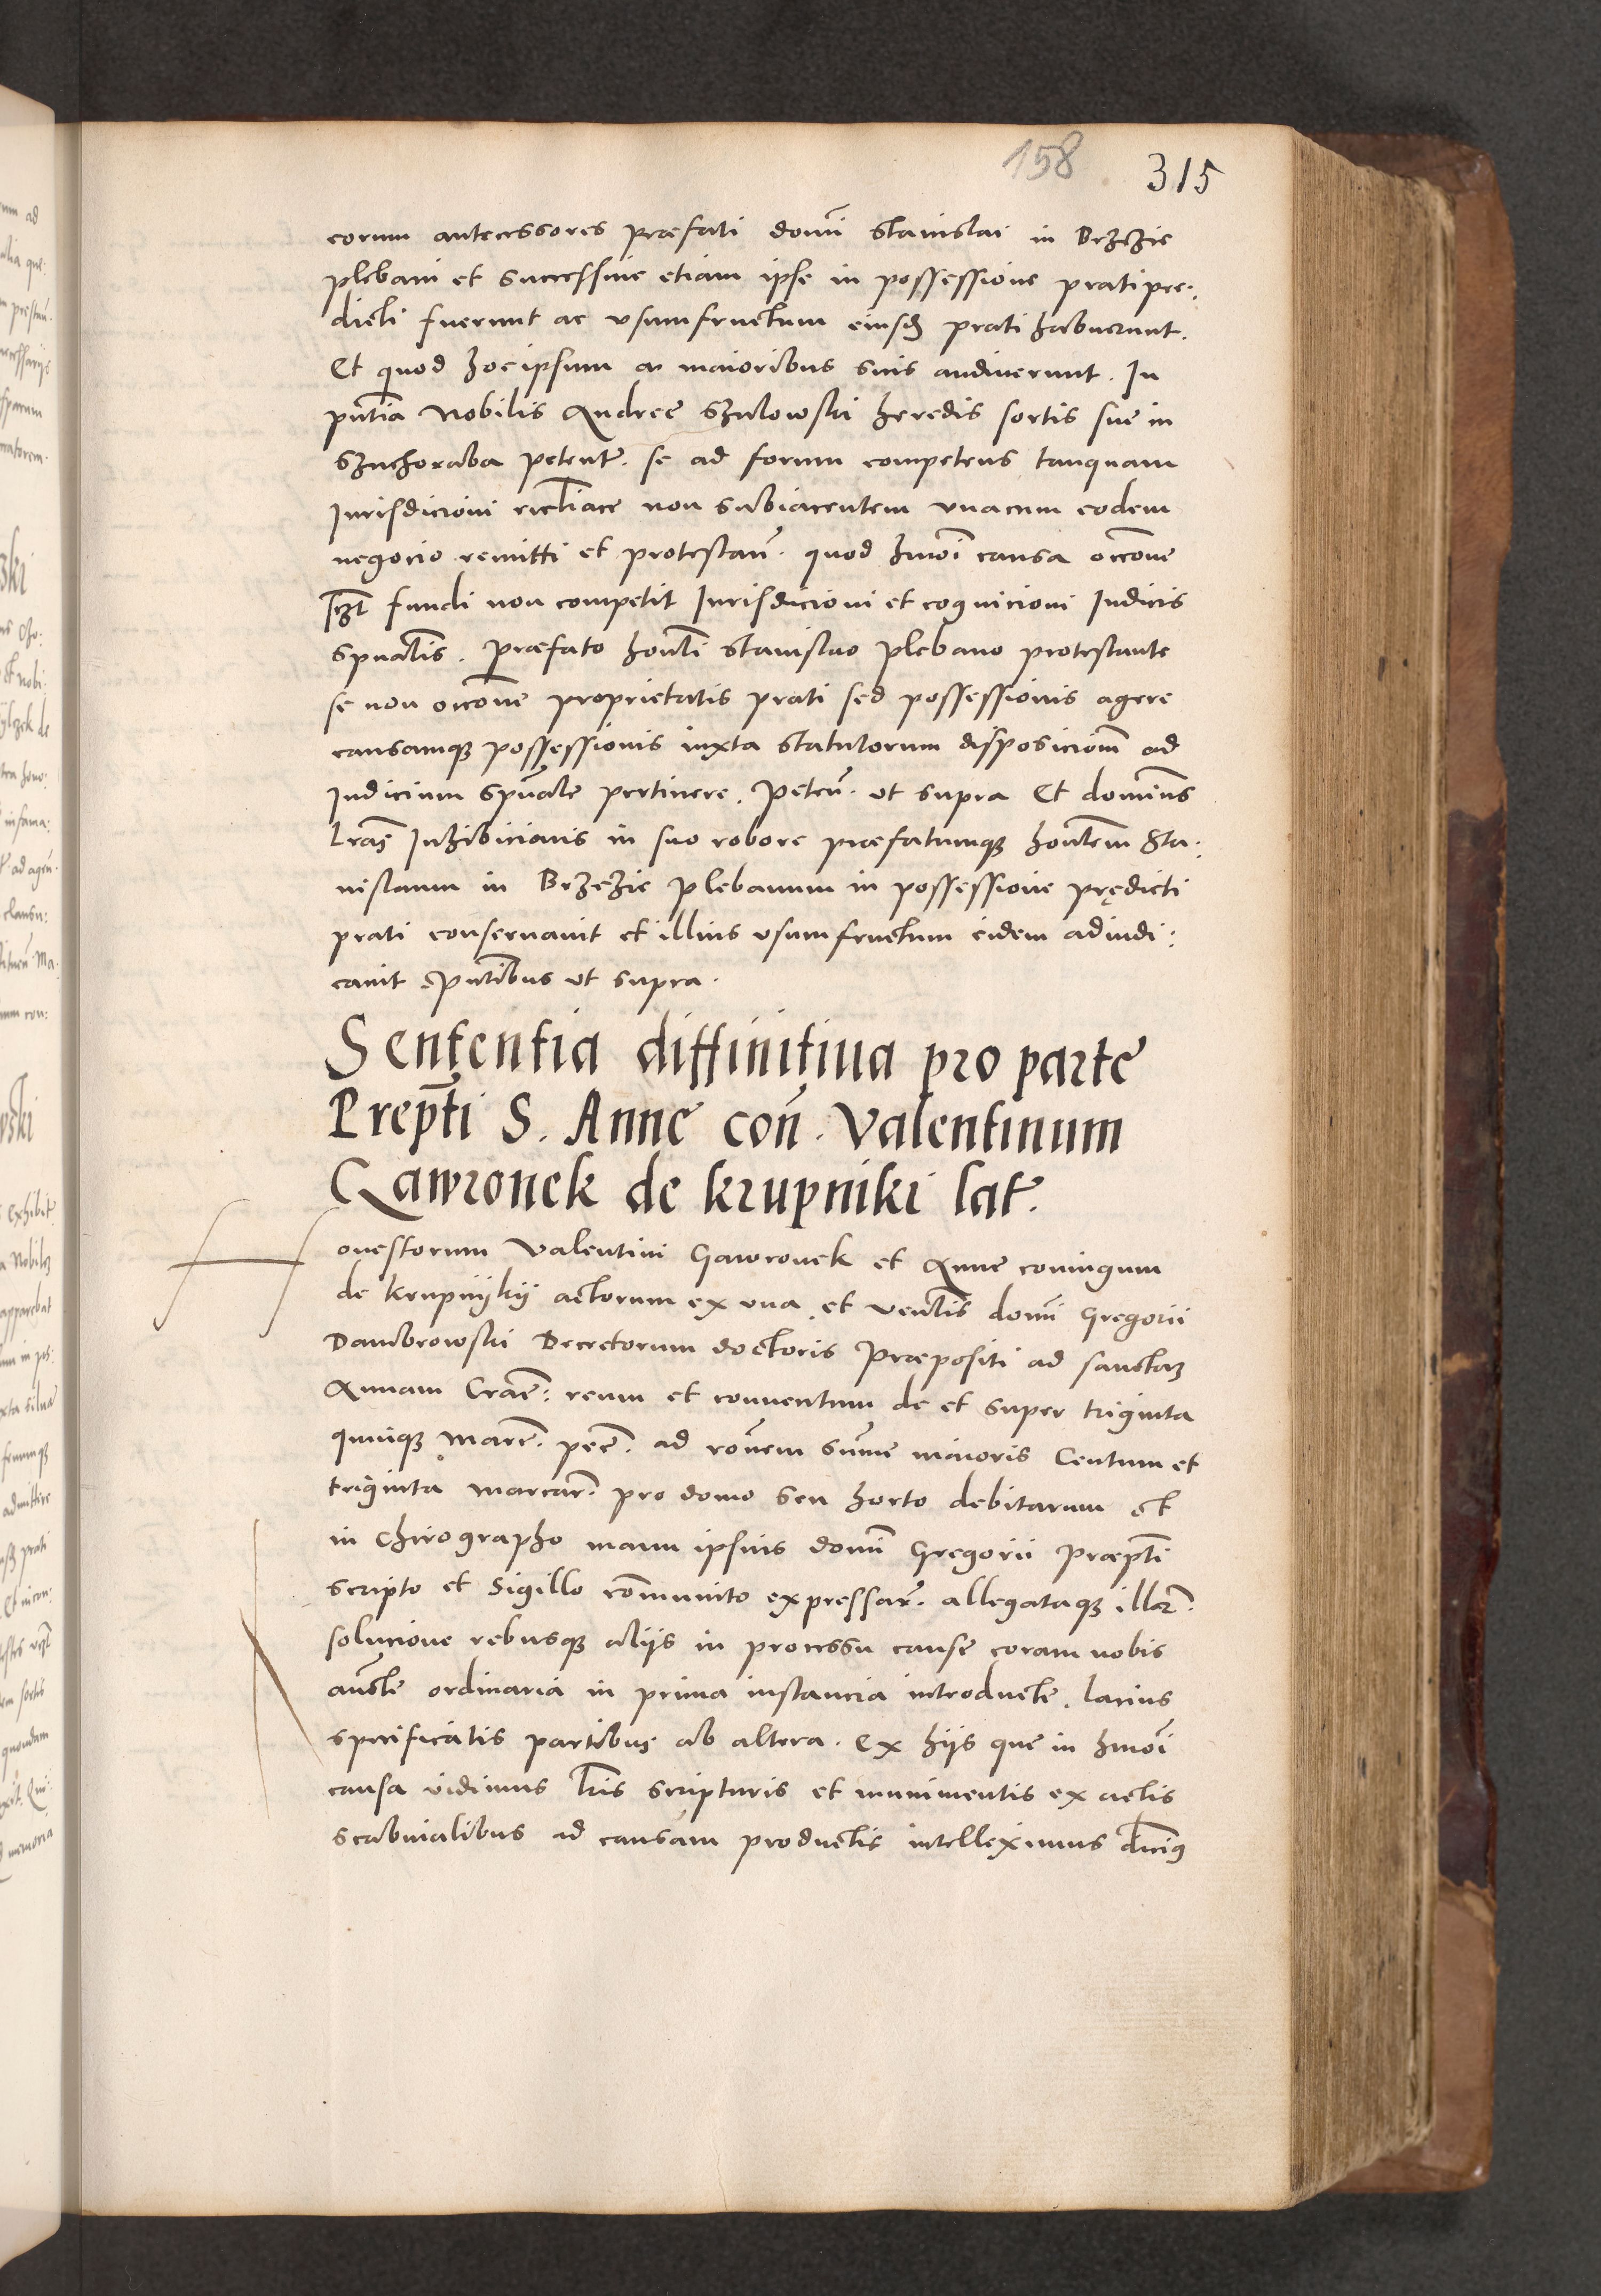 158 315
eorum antecessores præfati domī Stanislai in Brzezie
plebani et successiue etiam ipse in possessione prati pre:
dicti fuerunt ac vsumfructum eiusdē prati habuerunt.
Et quod hoc ipsum a maioribus suis audiuerunt. In
pn̄tia Nobilis Andree Szulowski heredis sortis sue in
Szuchoraba petent. se ad forum competens tanquam
Iurisdicioni ecc̄liace non subiacentem vnacum eodem
negocio remitti et protestan̄. quod hmōi causa occōne
fundi non competit Iurisdicioni et cognicioni Iudicis
spūalis. Præfato honlī Stanislao plebano protestante
se non occōne proprietatis prati sed possessionis agere
causamq; possessionis iuxta statutorum disposiciom̄ ad
Iudicium spūale pertinere. peten̄. vt supra Et domīnus
Lrās Inhibicionis in suo robore præfatumq; honlēm Sta:
nislaum in Brzezie plebanum in possessione prędicti
prati conseruauit et illius vsumfructum eidem adiudi:
cauit pn̄tibus vt supra.
Sententia diffinitiua pro parte
Prepti S. Anne con̄. Valentinum
Gawronek de Krupniki lat.
Honestorum Valentini Gawronek et Anne coniugum
de Krupnijkij actorum ex vna et venlis domī Gregorii
Dambrowski Decretorum doctoris Præpositi ad sanctam
Annam Crac̄: reum et conuentum de et super triginta
quinq; marc̄. pec̄. ad rōnem sum̄e maioris Centum et
triginta marcar̄. pro domo seu horto debitarum et
in Chirographo manu ipsius domī Gregorii Præpti
scripto et Sigillo com̄unito expressar̄. allegataq; illar̄.
solucione rebusq; aliis in processu cause coram nobis
auctē ordinaria in prima instancia introducte. lacius
specificatis partibus ab altera. Ex hijs que in hmōi
causa vidimus lr̄is scripturis et munimentis ex actis
scabinalibus ad causam productis intelleximus